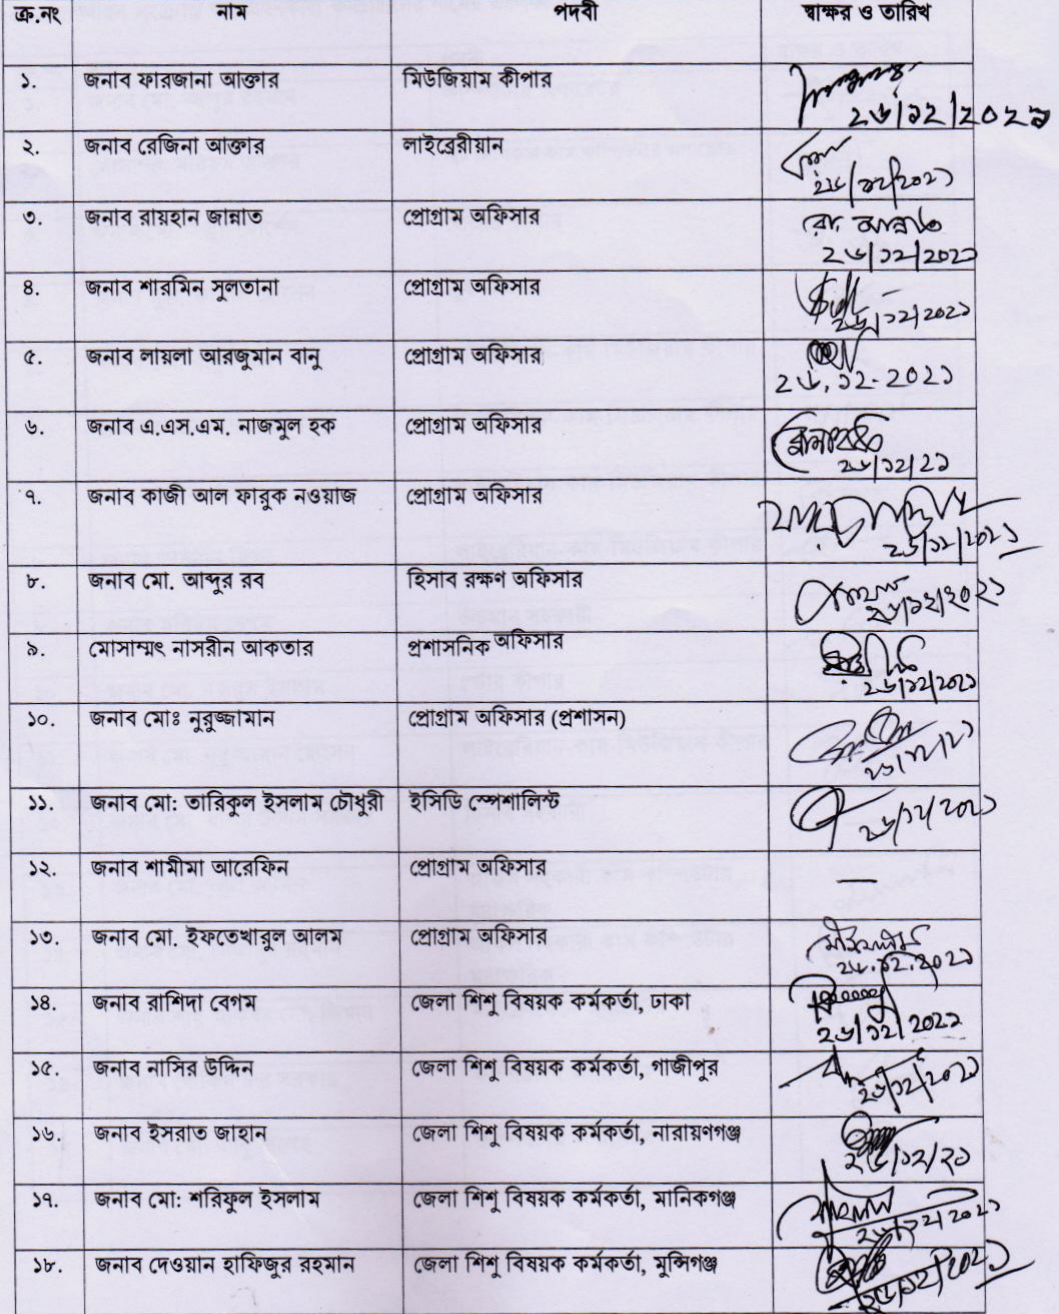 ক্র.নং নাম পদবী স্বাক্ষর ও তারিখ
১. জনাব ফারজানা আক্তার মিউজিয়াম কীপার
২৬/১২/২০২১
২. জনাব রেজিনা আক্তার লাইব্রেরীয়ান
২৬/১২/২০২১
৩. জনাব রায়হান জান্নাত প্রোগ্রাম অফিসার
২৬/১২/২০২১
৪. জনাব শারমিন সুলতানা প্রোগ্রাম অফিসার
২৬/১২/২০২১
৫. জনাব লায়লা আরজুমান বানু প্রোগ্রাম অফিসার
২৬.১২.২০২১
৬. জনাব এ.এস.এম. নাজমুল হক প্রোগ্রাম অফিসার
২৬/১২/২১
৭. জনাব কাজী আল ফারুক নওয়াজ প্রোগ্রাম অফিসার
২৬/১২/২০২১
৮. জনাব মো. আব্দুর রব হিসাব রক্ষণ অফিসার
২৬/১২/২০২১
৯. মোসাম্মৎ নাসরীন আকতার প্রশাসনিক অফিসার
২৬/১২/২০২১
১০. জনাব মোঃ নুরুজ্জামান প্রোগ্রাম অফিসার (প্রশাসন)
২৬/১২/২১
১১. জনাব মো: তারিকুল ইসলাম চৌধুরী ইসিডি স্পেশালিস্ট
২৬/১২/২০২১
১২. জনাব শামীমা আরেফিন প্রোগ্রাম অফিসার –
১৩. জনাব মো. ইফতেখারুল আলম প্রোগ্রাম অফিসার
২৬.১২.২০২১
১৪. জনাব রাশিদা বেগম জেলা শিশু বিষয়ক কর্মকর্তা, ঢাকা
২৬/১২/২০২১
১৫. জনাব নাসির উদ্দিন জেলা শিশু বিষয়ক কর্মকর্তা, গাজীপুর
২৬/১২/২০২১
১৬. জনাব ইসরাত জাহান জেলা শিশু বিষয়ক কর্মকর্তা, নারায়ণগঞ্জ
২৬/১২/২১
১৭. জনাব মো: শরিফুল ইসলাম জেলা শিশু বিষয়ক কর্মকর্তা, মানিকগঞ্জ
২৬/১২/২০২১
১৮. জনাব দেওয়ান হাফিজুর রহমান জেলা শিশু বিষয়ক কর্মকর্তা, মুন্সিগঞ্জ
২৬/১২/২০২১